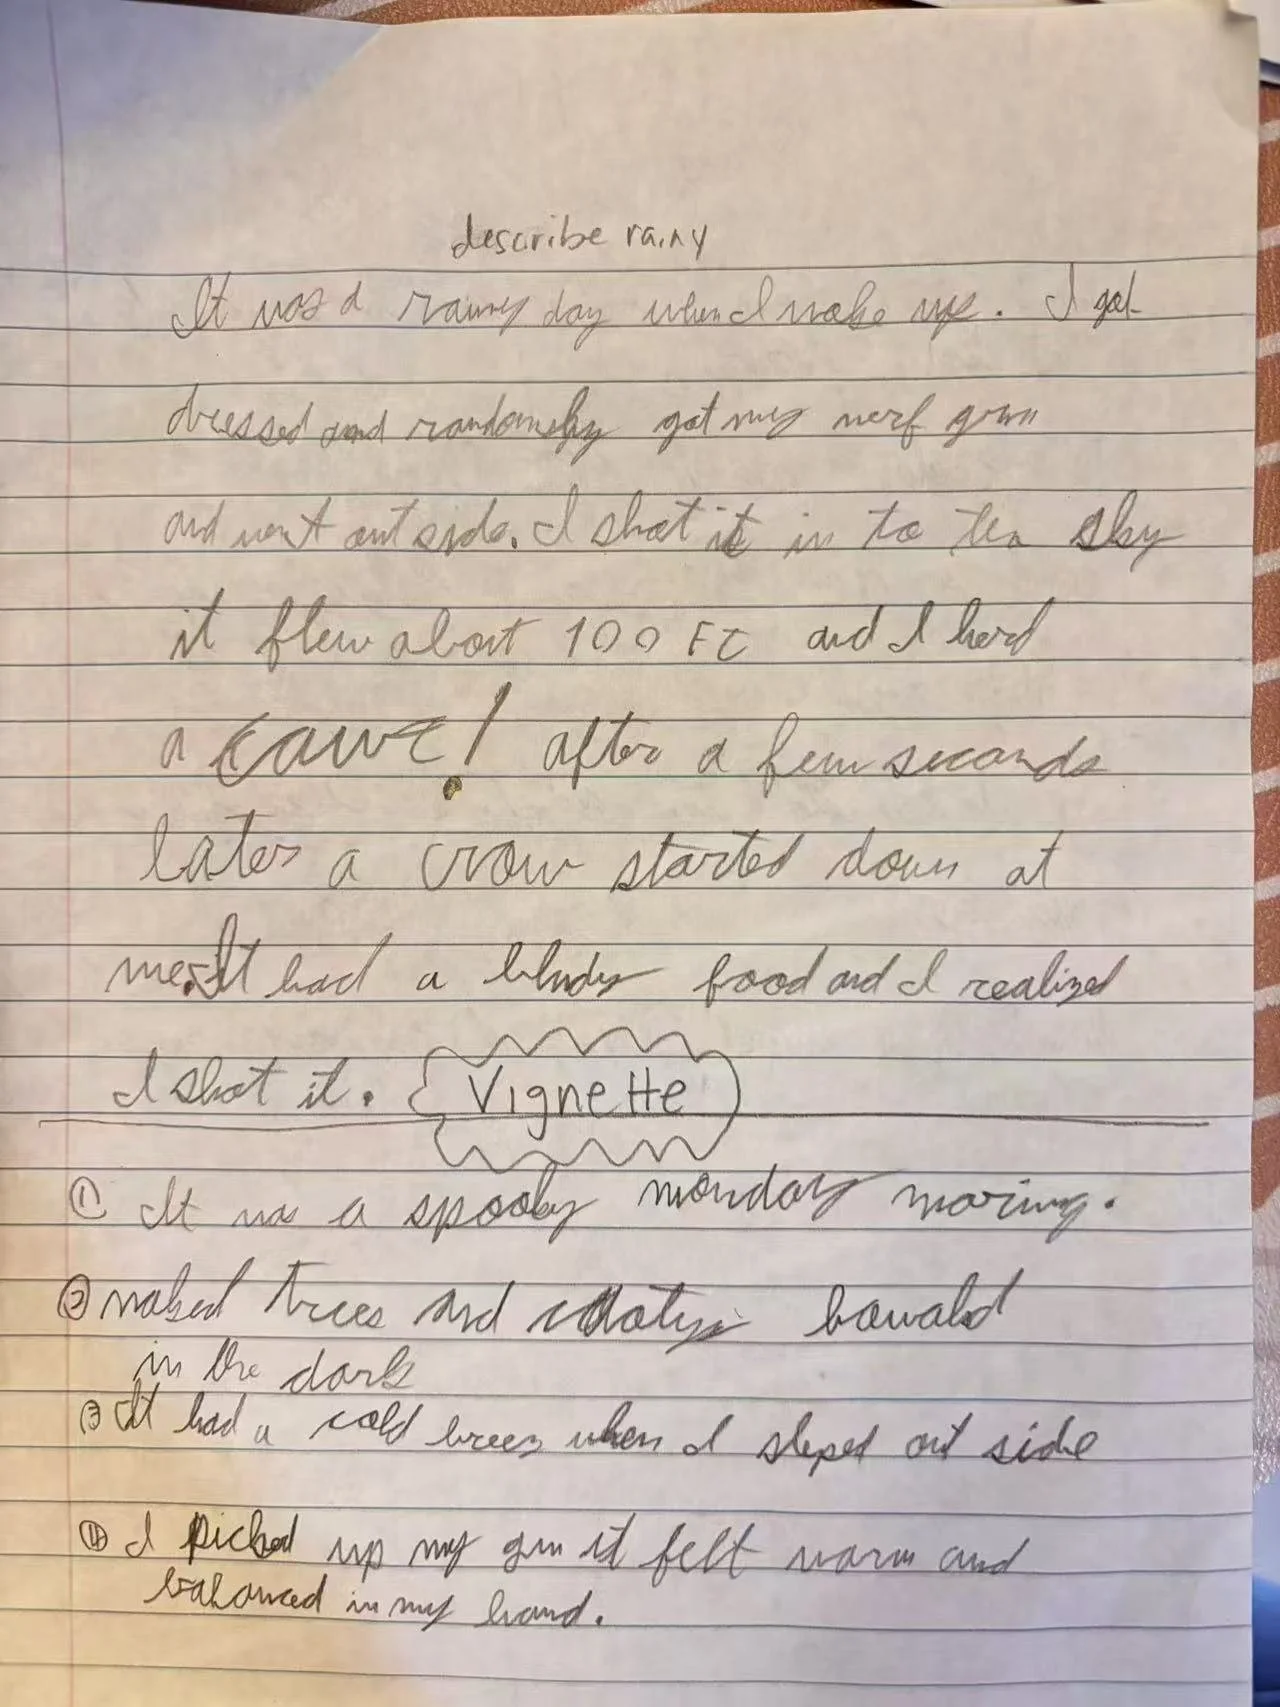 describe rainy
It was a rainy day when I woke up. I got
dressed and randomly got my nerf gun
and went out side. I shot it in to the sky
it flew about 100 FT and I herd
a cawc! after a few seconds
later a crow started down at
me. It had a bludy food and I realized
I shot it. Vignette
① It was a spooky monday moring.
② naked trees and bowald
in the dark
③ It had a cold breez when I steped out side
④ I picked up my gun it felt warm and
balanced in my hand.